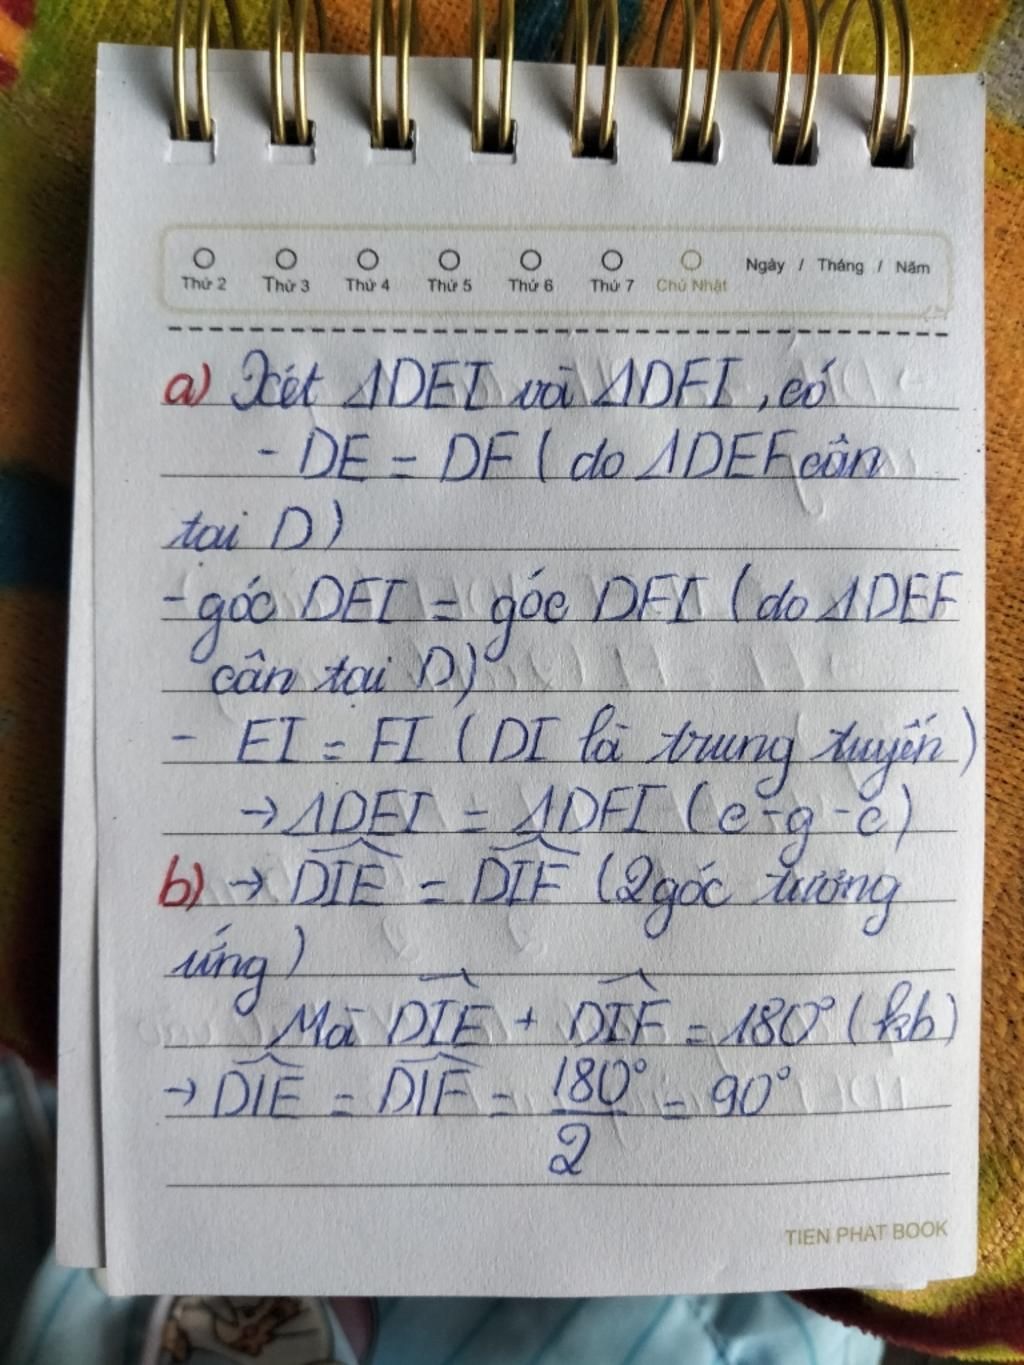 Thứ 2 Thứ 3 Thứ 4 Thứ 5 Thứ 6 Thứ 7 Chủ Nhật Ngày / Tháng / Năm
a) Xét ΔDEI và ΔDFI, có
- DE = DF ( do ΔDEF cân
tại D)
- góc DEI = góc DFI ( do ΔDEF
cân tại D)
- EI = FI ( DI là trung tuyến )
→ ΔDEI = ΔDFI ( c - g - c )
b) → \widehat{DIE} = \widehat{DIF} ( 2 góc tương
ứng )
Mà \widehat{DIE} + \widehat{DIF} = 180° ( kb )
→ \widehat{DIE} = \widehat{DIF} = \frac{180°}{2} = 90°
TIEN PHAT BOOK